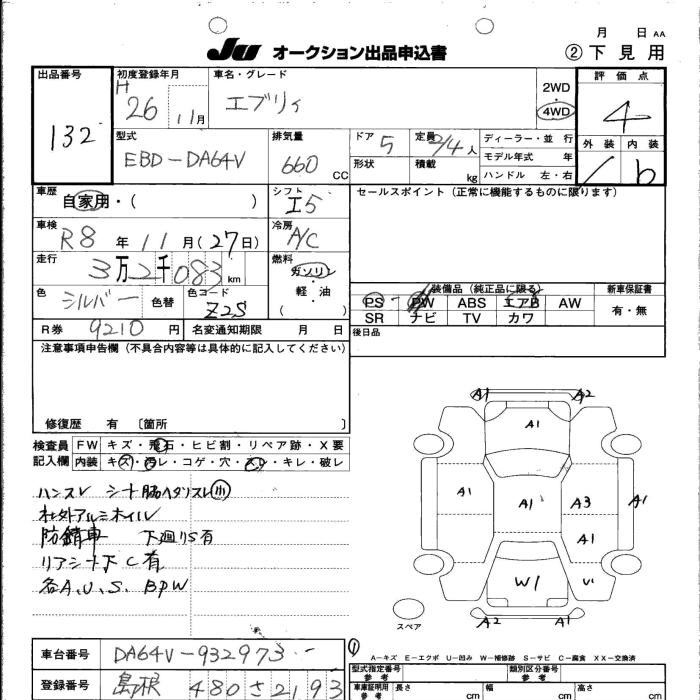 月 日 AA
JU オークション出品申込書
② 下見用
出品番号 132
初度登録年月 H 26 11月
車名・グレード エブリィ
2WD
4WD
評価点 4
外装 内装 b
型式 EBD-DA64V
排気量 660 CC
ドア 5
定員 2/4人
形状
積載 kg
ディーラー・並行
モデル年式 年
ハンドル 左・右
車歴 自家用・( )
シフト I5
セールスポイント (正常に機能するものに限ります)
車検 R8年11月(27日)
冷房 A/C
走行 3万2千083km
燃料 ガソリン 軽・油 ( )
色 シルバー 色替
色コード Z2S
装備品 (純正品に限る)
新車保証書
PS PW ABS エアB AW
有・無
SR ナビ TV カワ
R券 9210円
名変通知期限 月 日
後日品
注意事項申告欄 (不具合内容等は具体的に記入してください)
修復歴 有 〔箇所 〕
検査員記入欄
FW キズ・飛石・ヒビ割・リペア跡・X要
内装 キズ・汚レ・コゲ・穴・スレ・キレ・破レ
ハンスレ シート脇ヘタリスレ小
社外アルミホイル
防錆車 下廻りS有
リアシート下C有
各A、U、S、BPW
A1 A2
A1
A1 A1 A3 A1
A1
W1 U1
A2 A1
スペア
A-キズ E-エクボ U-凹み W-補修跡 S-サビ C-腐食 XX-交換済
車台番号 DA64V-932973
登録番号 島根 480 さ 2193
型式指定番号 参考
類別区分番号 参考
車庫証明用 参考 長さ cm 幅 cm 高さ cm